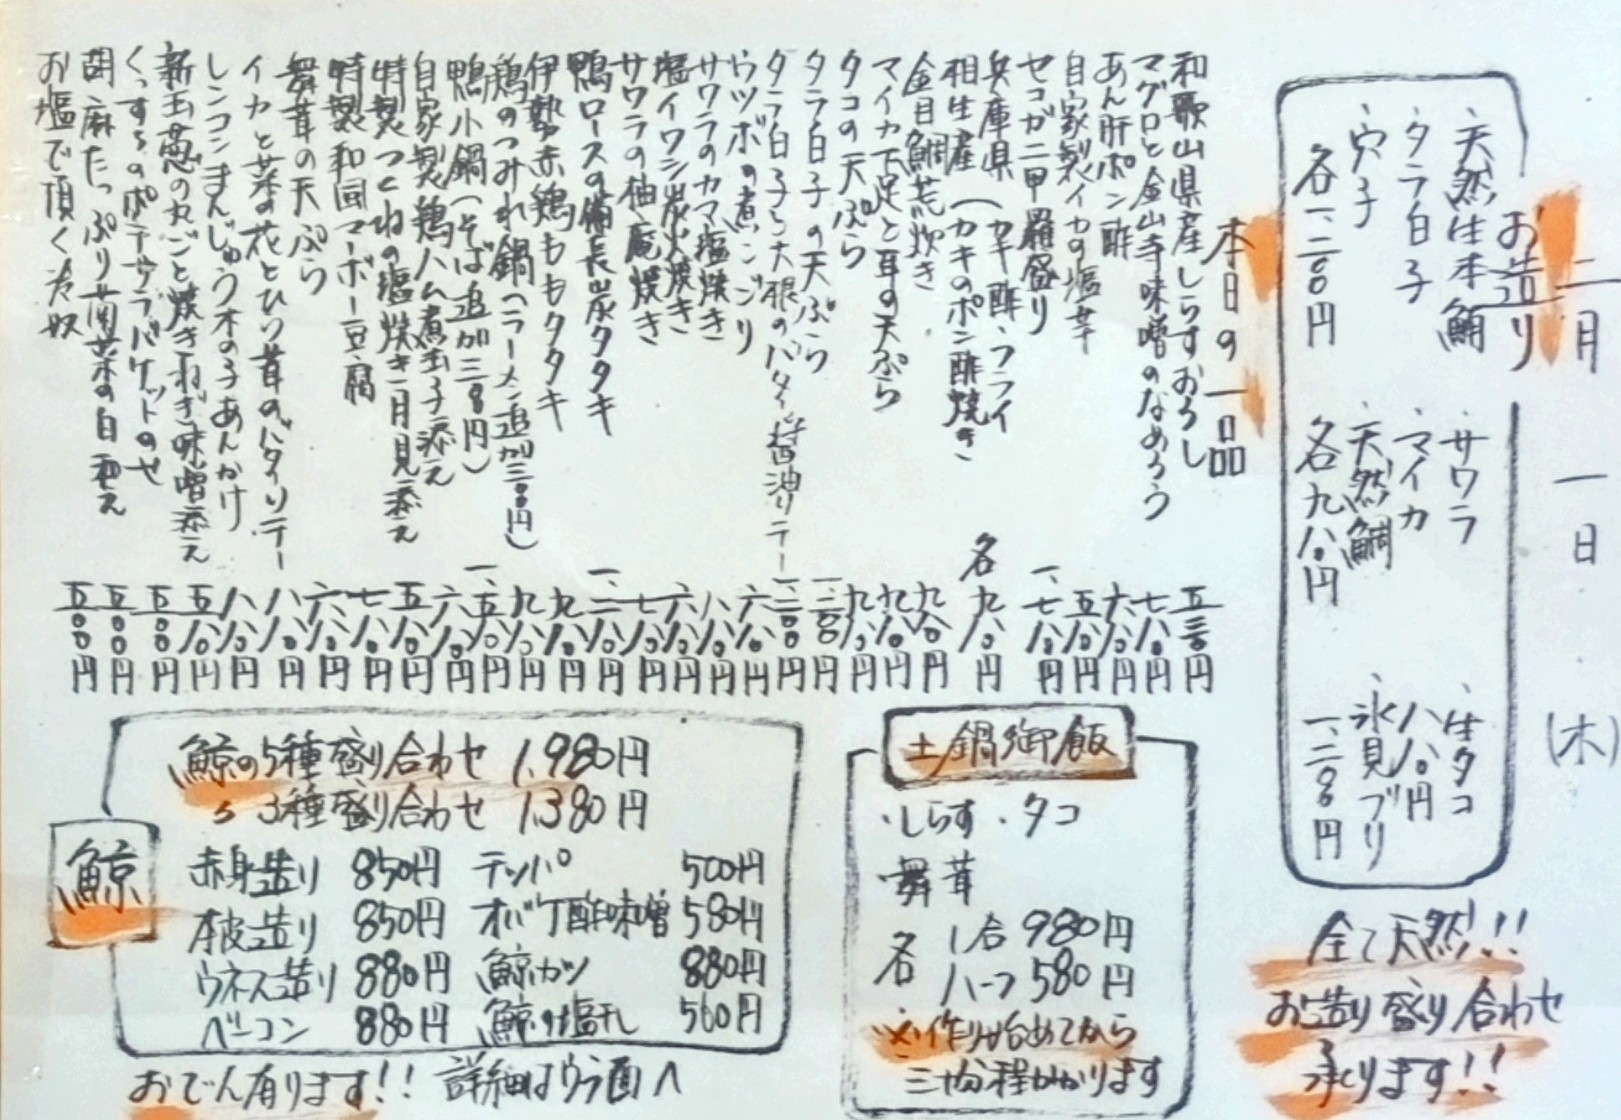 二月 一日 (木)
お造り
・天然生本鮪
・タラ白子
・穴子
各一、二八〇円
・サワラ
・マイカ
・天然鯛
各九八〇円
・生タコ
八八〇円
・氷見ブリ
一、二八〇円
全て天然!!
お造り盛り合わせ
承ります!!
本日の一品
和歌山県産しらすおろし 五三〇円
マグロと金山寺味噌のなめろう 七八〇円
あん肝ポン酢 六八〇円
自家製イカの塩辛 五八〇円
セコガニ甲羅盛り 一、七八〇円
兵庫県 (カキ酢・フライ
相生産 (カキのポン酢焼き 各九八〇円
金目鯛荒炊き 九八〇円
マイカ下足と耳の天ぷら 九八〇円
タコの天ぷら 九八〇円
タラ白子の天ぷら
タラ白子と大根のバター醤油ソテー
ウツボの煮こごり 六八〇円
サワラのカマ塩焼き 八八〇円
塩イワシ炭火焼き 六八〇円
サワラの柚庵焼き 七八〇円
鴨ロースの備長炭タタキ
伊勢赤鶏ももタタキ 九八〇円
鶏のつみれ鍋(ラーメン追加三〇〇円) 九八〇円
鴨小鍋(そば追加三〇〇円) 一、五八〇円
自家製鶏ハム煮玉子添え 六八〇円
特製つくねの塩焼き月見添え 五八〇円
特製和風マーボー豆腐 七八〇円
舞茸の天ぷら 六八〇円
イカと菜の花とひら茸のバターソテー 八八〇円
レンコンまんじゅう木の子あんかけ 八八〇円
新玉葱の丸ごと焼きねぎ味噌添え 五八〇円
くんすらのポテサラバケットのせ 五〇〇円
胡麻たっぷり青菜の白和え 五〇〇円
お塩で頂く冷奴 五〇〇円
土鍋御飯
・しらす・タコ
・舞茸
各 1合 980円
ハーフ 580円
※作り始めてから
三十分程かかります
鯨
鯨の5種盛り合わせ 1,980円
〃 3種盛り合わせ 1,380円
赤身造り 850円 テッパ 500円
本皮造り 850円 オバケ酢味噌 580円
ウネス造り 880円 鯨カツ 880円
ベーコン 880円 鯨の塩干し 560円
おでん有ります!! 詳細はウラ面へ